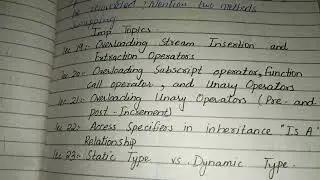 is inherited? Mention two methods
Imp Topics
Lec 19:- Overloading Stream Insertion and
Extraction Operators
Lec 20:- Overloading Subscript operator, Function
call operator, and Unary Operators
Lec 21:- Overloading Unary Operators (Pre- and
post-Increment)
Lec 22:- Access Specifiers in inheritance "Is A"
Relationship
Lec 23:- Static Type vs Dynamic Type.